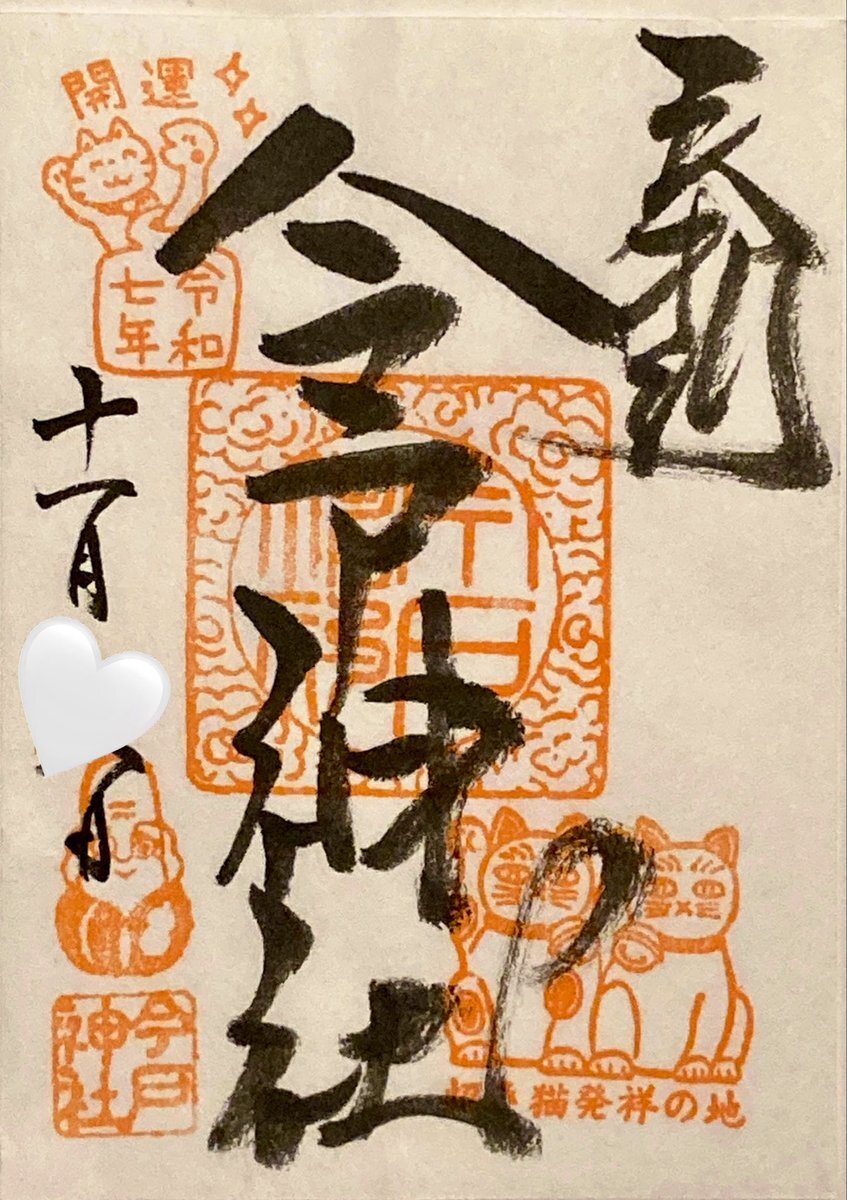 奉拝
今戸神社
開運
令和
七年
十一月
日
今戸
神社
招き猫発祥の地